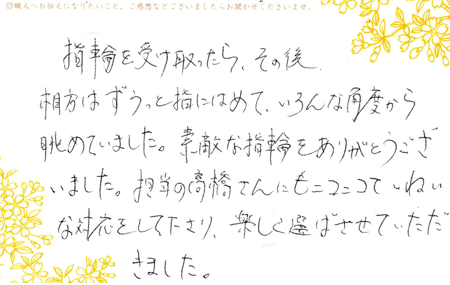 ◎職人へお伝えになりたいこと、ご感想などございましたらお聞かせくださいませ。
指輪を受け取ったら、その後
相方はずうっと指にはめて、いろんな角度から
眺めていました。素敵な指輪をありがとうござ
いました。担当の高橋さんにもニコニコていねい
な対応をして下さり、楽しく選ばさせていただ
きました。